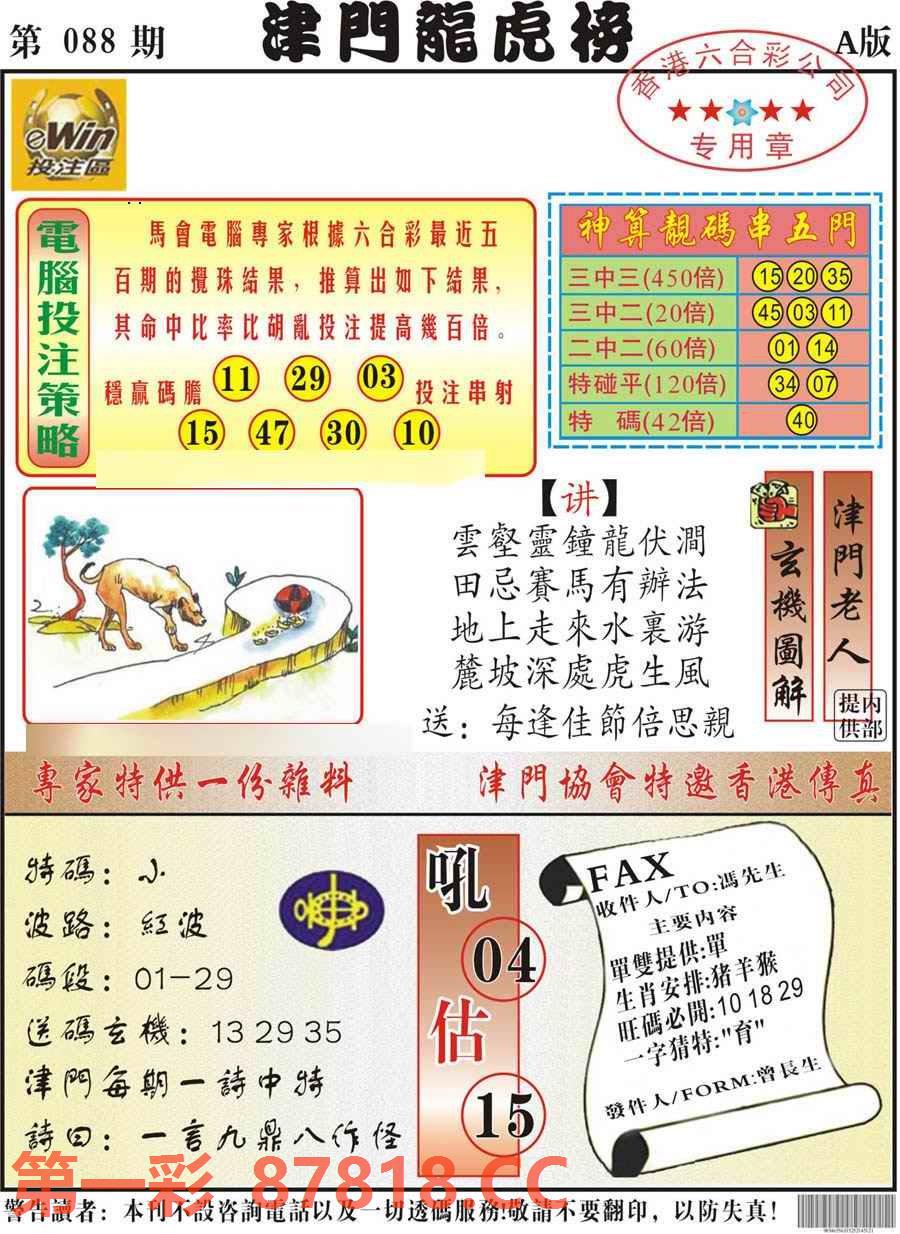 第 088 期
津門龍虎榜
A版
香港六合彩公司
专用章
eWin
投注區
電腦投注策略
馬會電腦專家根據六合彩最近五
百期的攪珠結果，推算出如下結果，
其命中比率比胡亂投注提高幾百倍。
穩赢碼膽 11 29 03 投注串射
15 47 30 10
神算靚碼串五門
三中三(450倍) 15 20 35
三中二(20倍) 45 03 11
二中二(60倍) 01 14
特碰平(120倍) 34 07
特 碼(42倍) 40
【讲】
雲壑靈鐘龍伏澗
田忌賽馬有辦法
地上走來水裏游
麓坡深處虎生風
送：每逢佳節倍思親
玄機圖解
津門老人
内部提供
專家特供一份雜料
津門協會特邀香港傳真
特碼：小
波路：紅波
碼段：01-29
送碼玄機：13 29 35
津門每期一詩中特
詩曰：一言九鼎八作怪
吼
04
估
15
FAX
收件人/TO:馮先生
主要内容
單雙提供:單
生肖安排:猪羊猴
旺碼必開:10 18 29
一字猜特:"育"
發件人/FORM:曾長生
第一彩 87818.CC
警告讀者：本刊不設咨詢電話以及一切透碼服務!敬請不要翻印，以防失真!